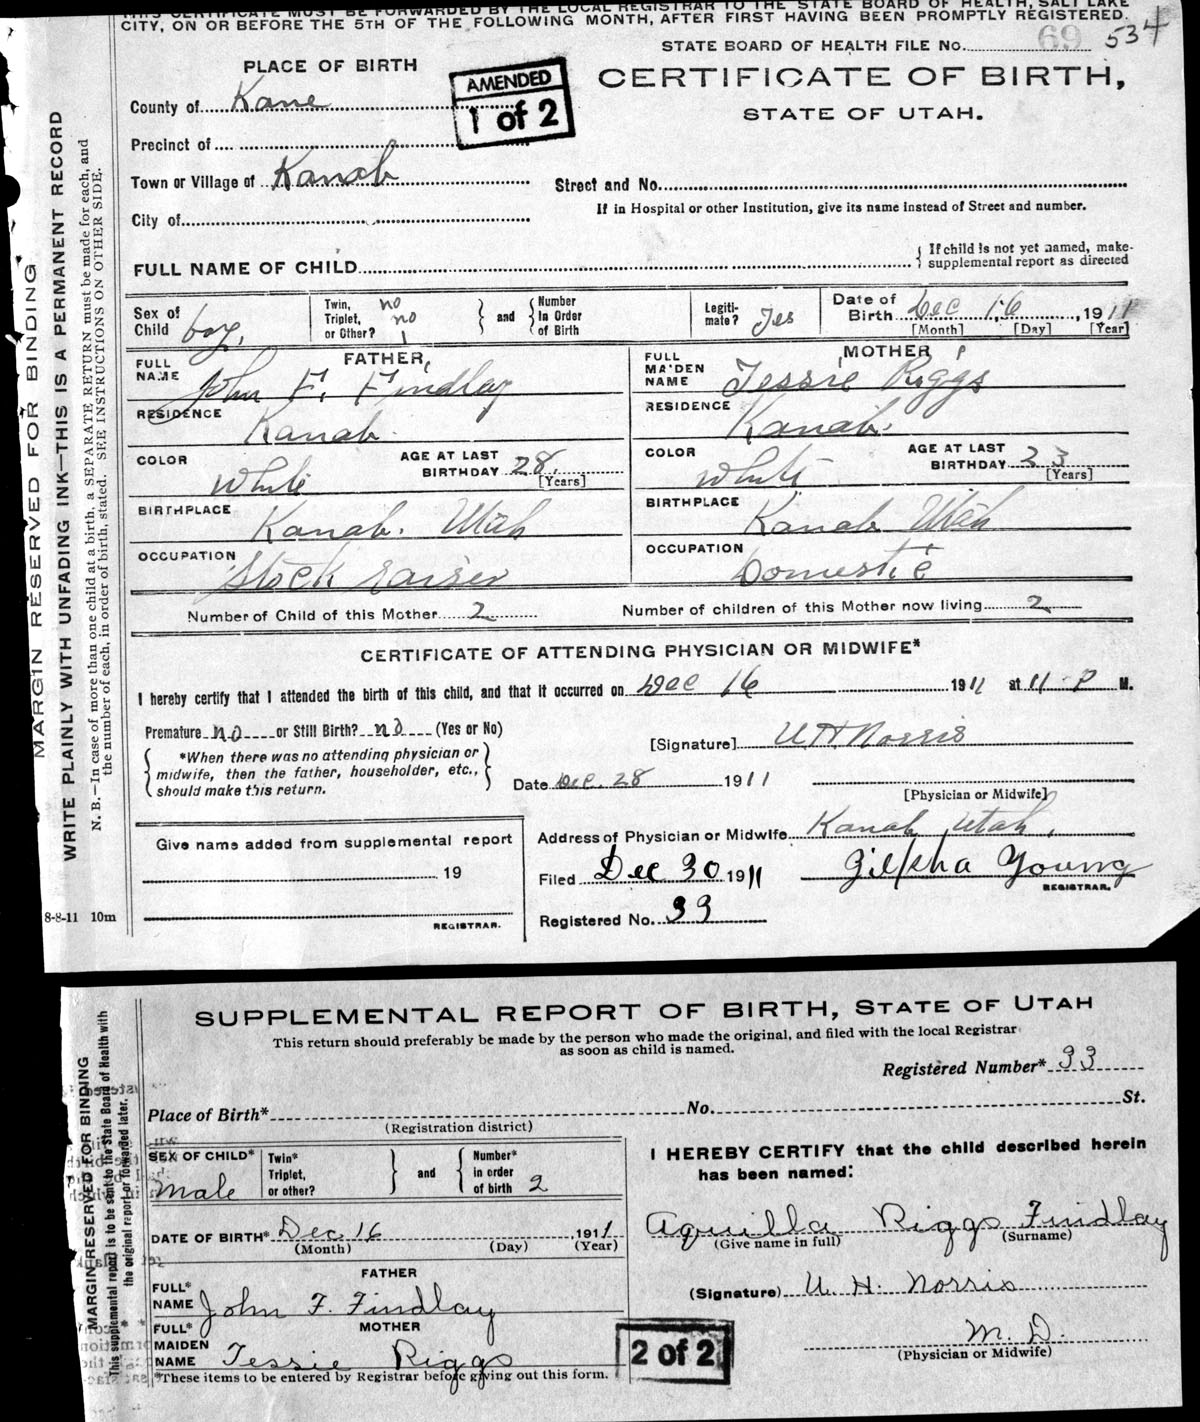 THIS CERTIFICATE MUST BE FORWARDED BY THE LOCAL REGISTRAR TO THE STATE BOARD OF HEALTH, SALT LAKE
CITY, ON OR BEFORE THE 5TH OF THE FOLLOWING MONTH, AFTER FIRST HAVING BEEN PROMPTLY REGISTERED.
STATE BOARD OF HEALTH FILE No. 69 534
PLACE OF BIRTH
AMENDED
1 of 2
CERTIFICATE OF BIRTH,
STATE OF UTAH.
County of Kane
Precinct of
Town or Village of Kanab
Street and No.
City of
If in Hospital or other Institution, give its name instead of Street and number.
FULL NAME OF CHILD
{ If child is not yet named, make
supplemental report as directed
Sex of Child boy.
Twin, no
Triplet, no
or Other?
} and { Number In Order of Birth
Legiti-mate? Yes
Date of Birth Dec 16, 1911
[Month] [Day] [Year]
FATHER
FULL NAME John F. Findlay
RESIDENCE Kanab.
COLOR White
AGE AT LAST BIRTHDAY 28.
[Years]
BIRTHPLACE Kanab. Utah
OCCUPATION Stock raiser
MOTHER
FULL MAIDEN NAME Tessie Riggs
RESIDENCE Kanab.
COLOR White
AGE AT LAST BIRTHDAY 23
[Years]
BIRTHPLACE Kanab Utah
OCCUPATION Domestic
Number of Child of this Mother 2
Number of children of this Mother now living 2
CERTIFICATE OF ATTENDING PHYSICIAN OR MIDWIFE*
I hereby certify that I attended the birth of this child, and that it occurred on Dec 16 1911 at 11 P M.
Premature no or Still Birth? no (Yes or No)
*When there was no attending physician or
midwife, then the father, householder, etc.,
should make this return.
[Signature] U H Norris
Date Dec. 28 1911
[Physician or Midwife]
Address of Physician or Midwife Kanab, Utah.
Give name added from supplemental report
19
REGISTRAR.
Filed Dec 30 1911
Young
REGISTRAR.
Registered No. 33
8-8-11 10m
MARGIN RESERVED FOR BINDING
WRITE PLAINLY WITH UNFADING INK—THIS IS A PERMANENT RECORD
N. B.—In case of more than one child at a birth, a SEPARATE RETURN must be made for each, and
the number of each, in order of birth, stated. SEE INSTRUCTIONS ON OTHER SIDE.
SUPPLEMENTAL REPORT OF BIRTH, STATE OF UTAH
This return should preferably be made by the person who made the original, and filed with the local Registrar
as soon as child is named.
Registered Number* 33
Place of Birth* No. St.
(Registration district)
SEX OF CHILD* Male
Twin*
Triplet,
or other?
} and { Number* in order of birth 2
I HEREBY CERTIFY that the child described herein
has been named:
DATE OF BIRTH* Dec. 16 1911
(Month) (Day) (Year)
Aquilla Riggs Findlay
(Give name in full) (Surname)
FATHER
FULL* NAME John F. Findlay
(Signature) U. H. Norris
MOTHER
FULL* MAIDEN NAME Tessie Riggs
M. D.
(Physician or Midwife)
2 of 2
*These items to be entered by Registrar before giving out this form.
MARGIN RESERVED FOR BINDING
This supplemental report is to be sent to the State Board of Health with
the original report or forwarded later.